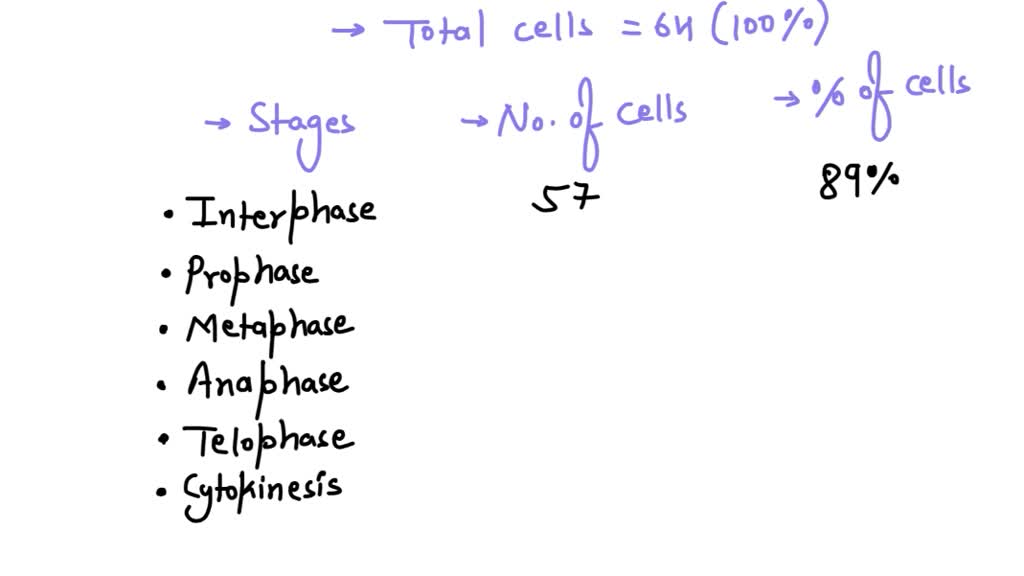 → Total cells = 64 (100%)
→ Stages → No. of cells → % of cells
• Interphase 57 89%
• Prophase
• Metaphase
• Anaphase
• Telophase
• Cytokinesis